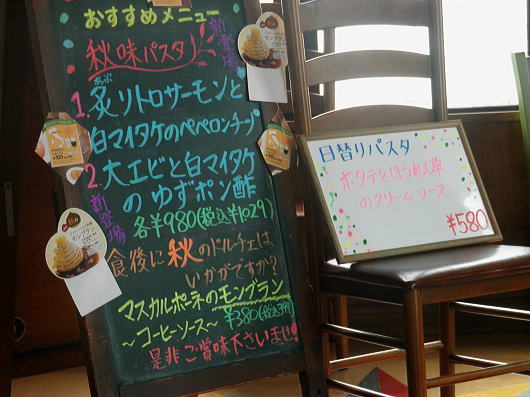 おすすめメニュー
秋味パスタ!
新登場
1. 炙りトロサーモンと
あぶ
白マイタケのペペロンチップ
2. 大エビと白マイタケ
のゆずポン酢
各¥980(税込¥1029)
新登場
食後に秋のドルチェは
いかがですか?
マスカルポーネのモンブラン
~コーヒーソース~ ¥380(税込399)
是非ご賞味下さいませ!
日替りパスタ
ホタテとほうれん草
のクリームソース
¥580